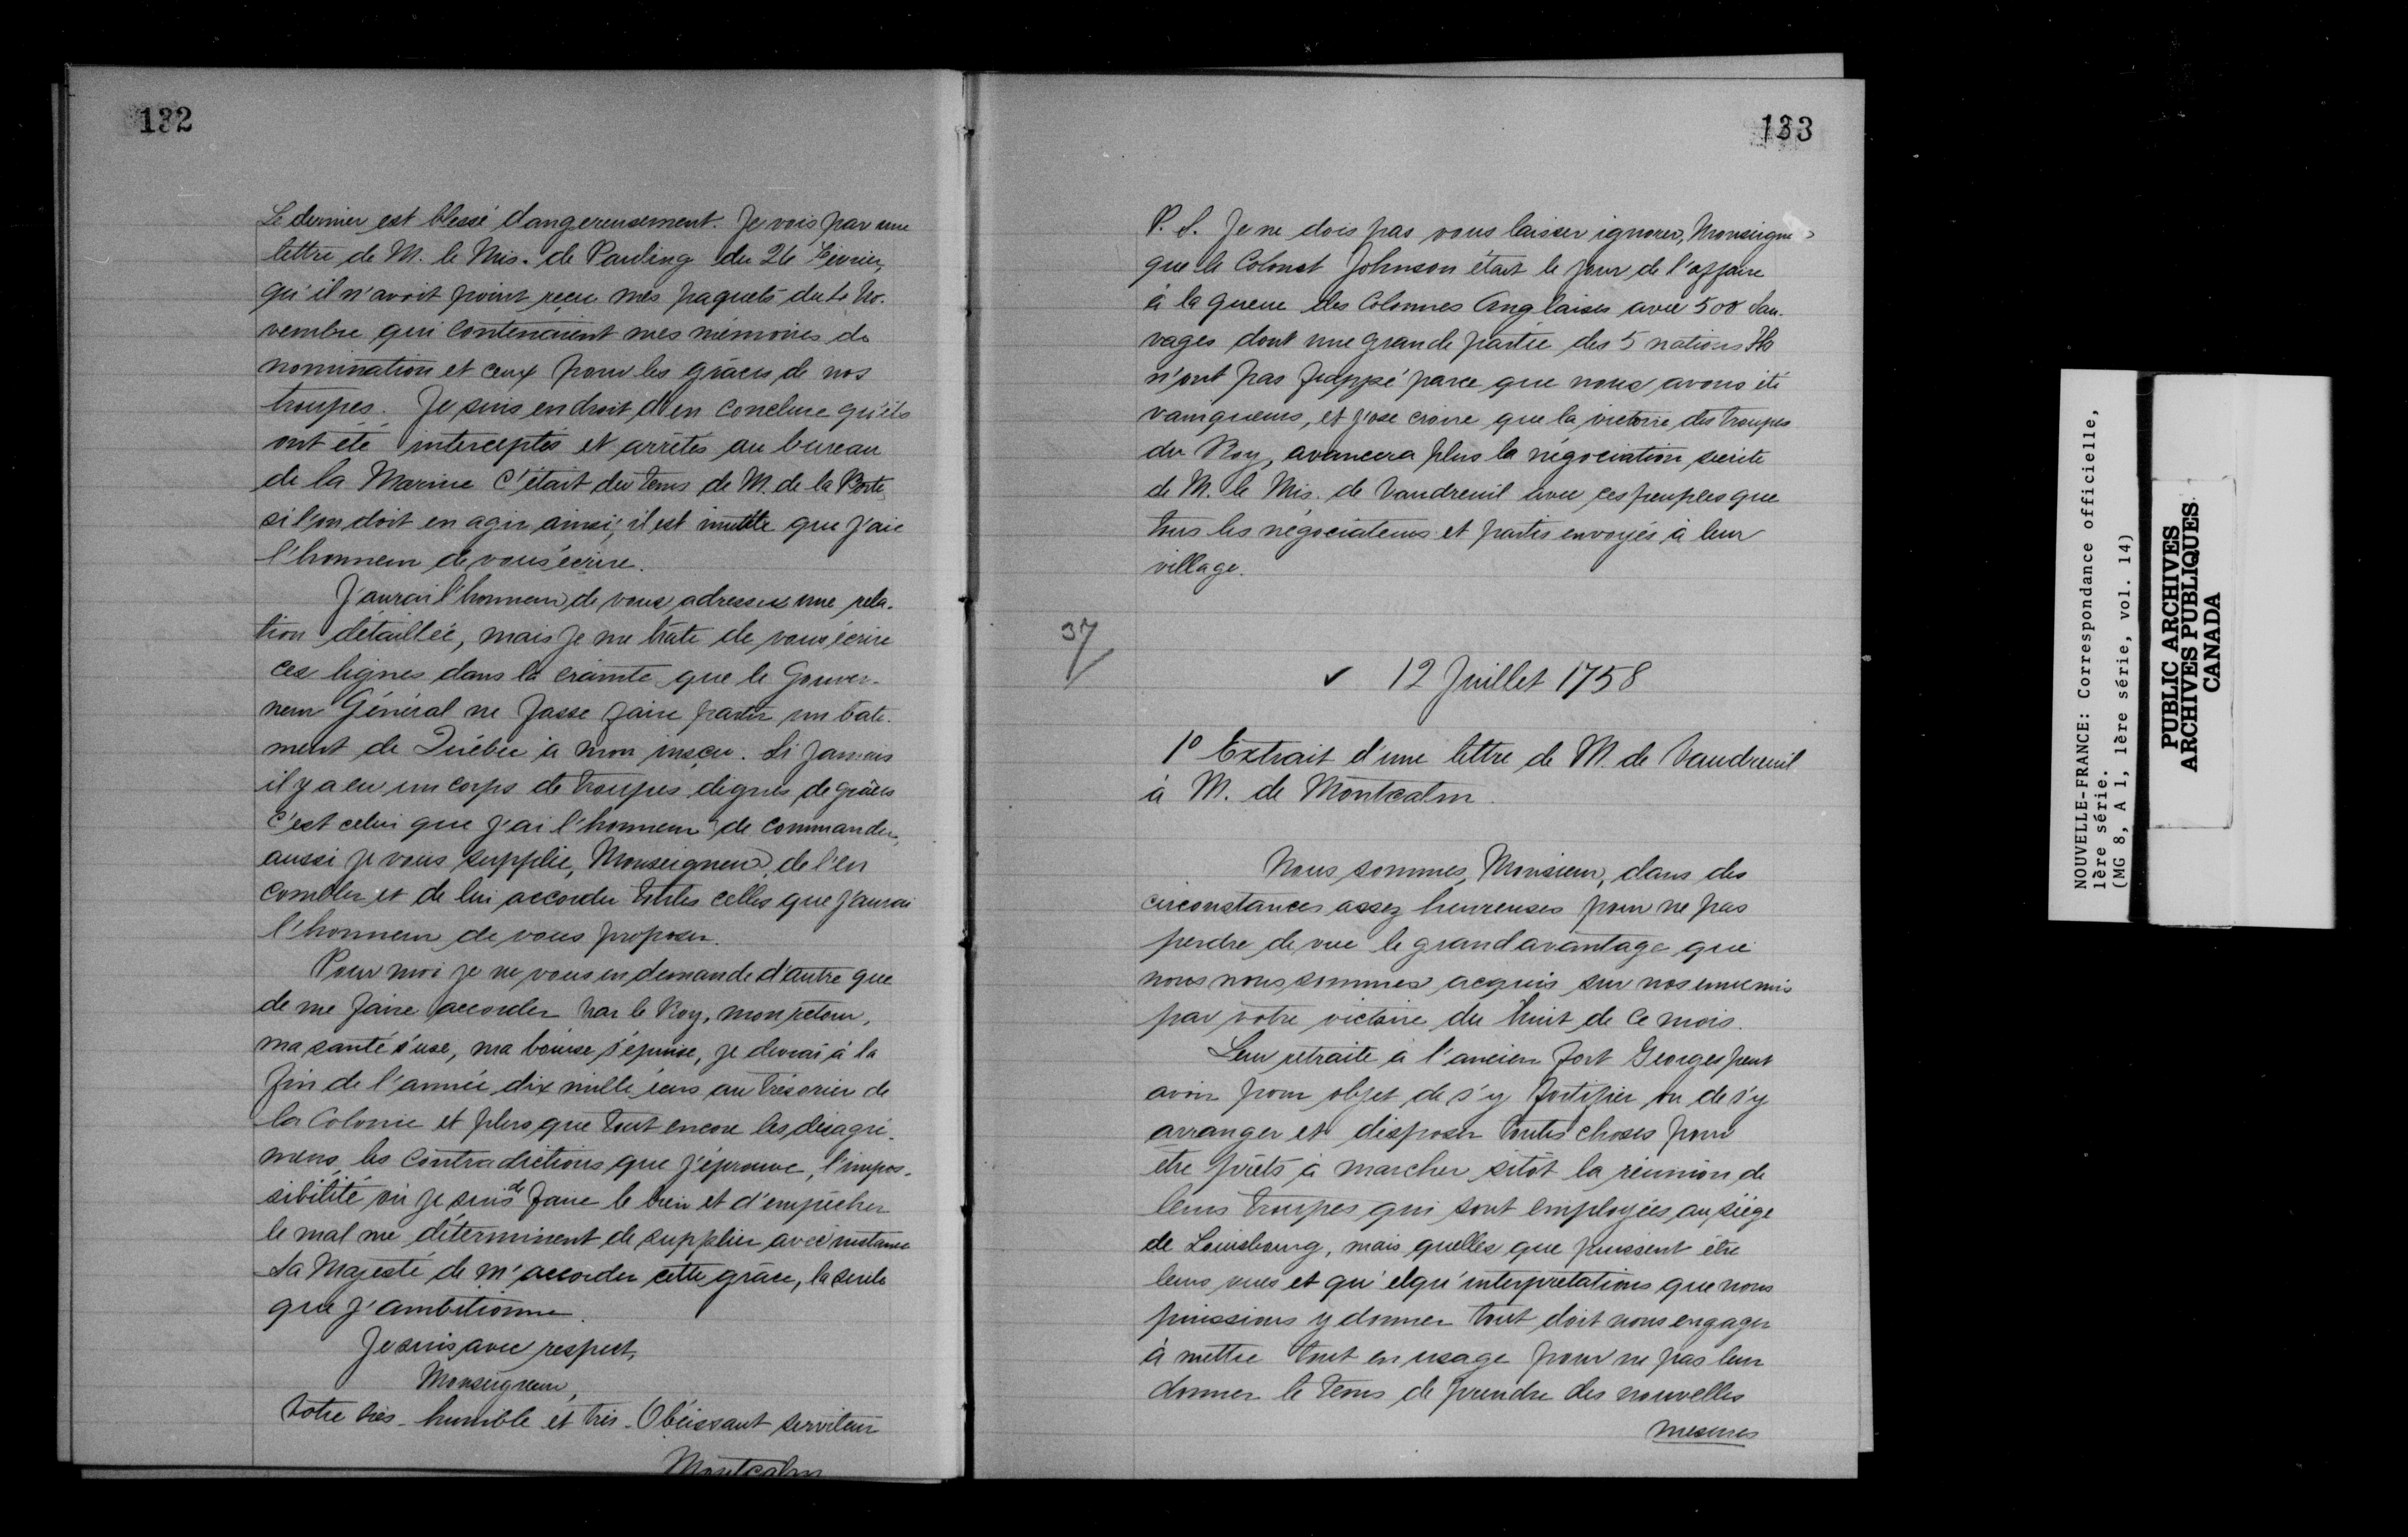 132
Le dernier est blessé dangereusement. Je vois par une
lettre de M. le Mis. de Pauling du 26 Février,
qu'il n'avoit point reçu mes paquets du 4 No-
vembre qui contenaient mes mémoires de
nomination et ceux pour les grâces de nos
troupes. Je suis en droit d'en conclure qu'ils
ont été interceptés et arrêtés au bureau
de la Marine C'était du tems de M. de la Porte
si l'on doit en agir ainsi, il est inutile que j'aie
l'honneur de vous écrire.
J'aurai l'honneur de vous adresser une rela-
tion détaillée, mais je me hâte de vous écrire
ces lignes dans la crainte que le Gouver-
neur Général ne fasse faire partir un bati-
ment de Québec à mon insçu. Si jamais
il y a eu un corps de troupes dignes de grâces
c'est celui que j'ai l'honneur de commander,
aussi je vous supplie, Monseigneur, de l'en
combler et de lui accorder toutes celles que j'aurai
l'honneur de vous proposer.
Pour moi je ne vous en demande d'autre que
de me faire accorder par le Roy, mon retour,
ma santé s'use, ma bourse s'épuise, je devrai à la
fin de l'année dix mille écus au trésorier de
la Colonie et plus que tout encore les désagré-
mens, les contradictions que j'éprouve, l'impos-
sibilité où je suis de faire le bien et d'empêcher
le mal me déterminent de supplier avec instance
Sa Majesté de m'accorder cette grâce, la seule
que j'ambitionne.
Je suis avec respect,
Monseigneur,
Votre très-humble et très-Obéissant serviteur
Montcalm
133
P. S. Je ne dois pas vous laisser ignorer, Monseigneur
que le Colonel Johnson était le jour de l'affaire
à la queue des Colonnes Anglaises avec 500 Sau-
vages dont une grande partie des 5 nations Ils
n'ont pas frappé parce que nous avons été
vainqueurs, et j'ose croire que la victoire des troupes
du Roy, avancera plus la négociation secrète
de M. le Mis. de Vaudreuil avec ces peuples que
tous les négociateurs et partis envoyés à leur
village.
37
✓ 12 Juillet 1758
1º Extrait d'une lettre de M. de Vaudreuil
à M. de Montcalm.
Nous sommes, Monsieur, dans des
circonstances assez heureuses pour ne pas
perdre de vue le grand avantage que
nous nous sommes acquis sur nos ennemis
par votre victoire du huit de ce mois.
Leur retraite à l'ancien fort Georges peut
avoir pour objet de s'y fortifier ou de s'y
arranger et disposer toutes choses pour
être prêts à marcher sitôt la réunion de
leurs troupes qui sont employées au siège
de Louisbourg, mais quelles que puissent être
leurs vues et qu'elqu'interprétations que nous
puissions y donner tout doit nous engager
à mettre tout en usage pour ne pas leur
donner le tems de prendre des nouvelles
mesures
NOUVELLE-FRANCE: Correspondance officielle,
1ère série.
(MG 8, A 1, 1ère série, vol. 14)
PUBLIC ARCHIVES
ARCHIVES PUBLIQUES
CANADA